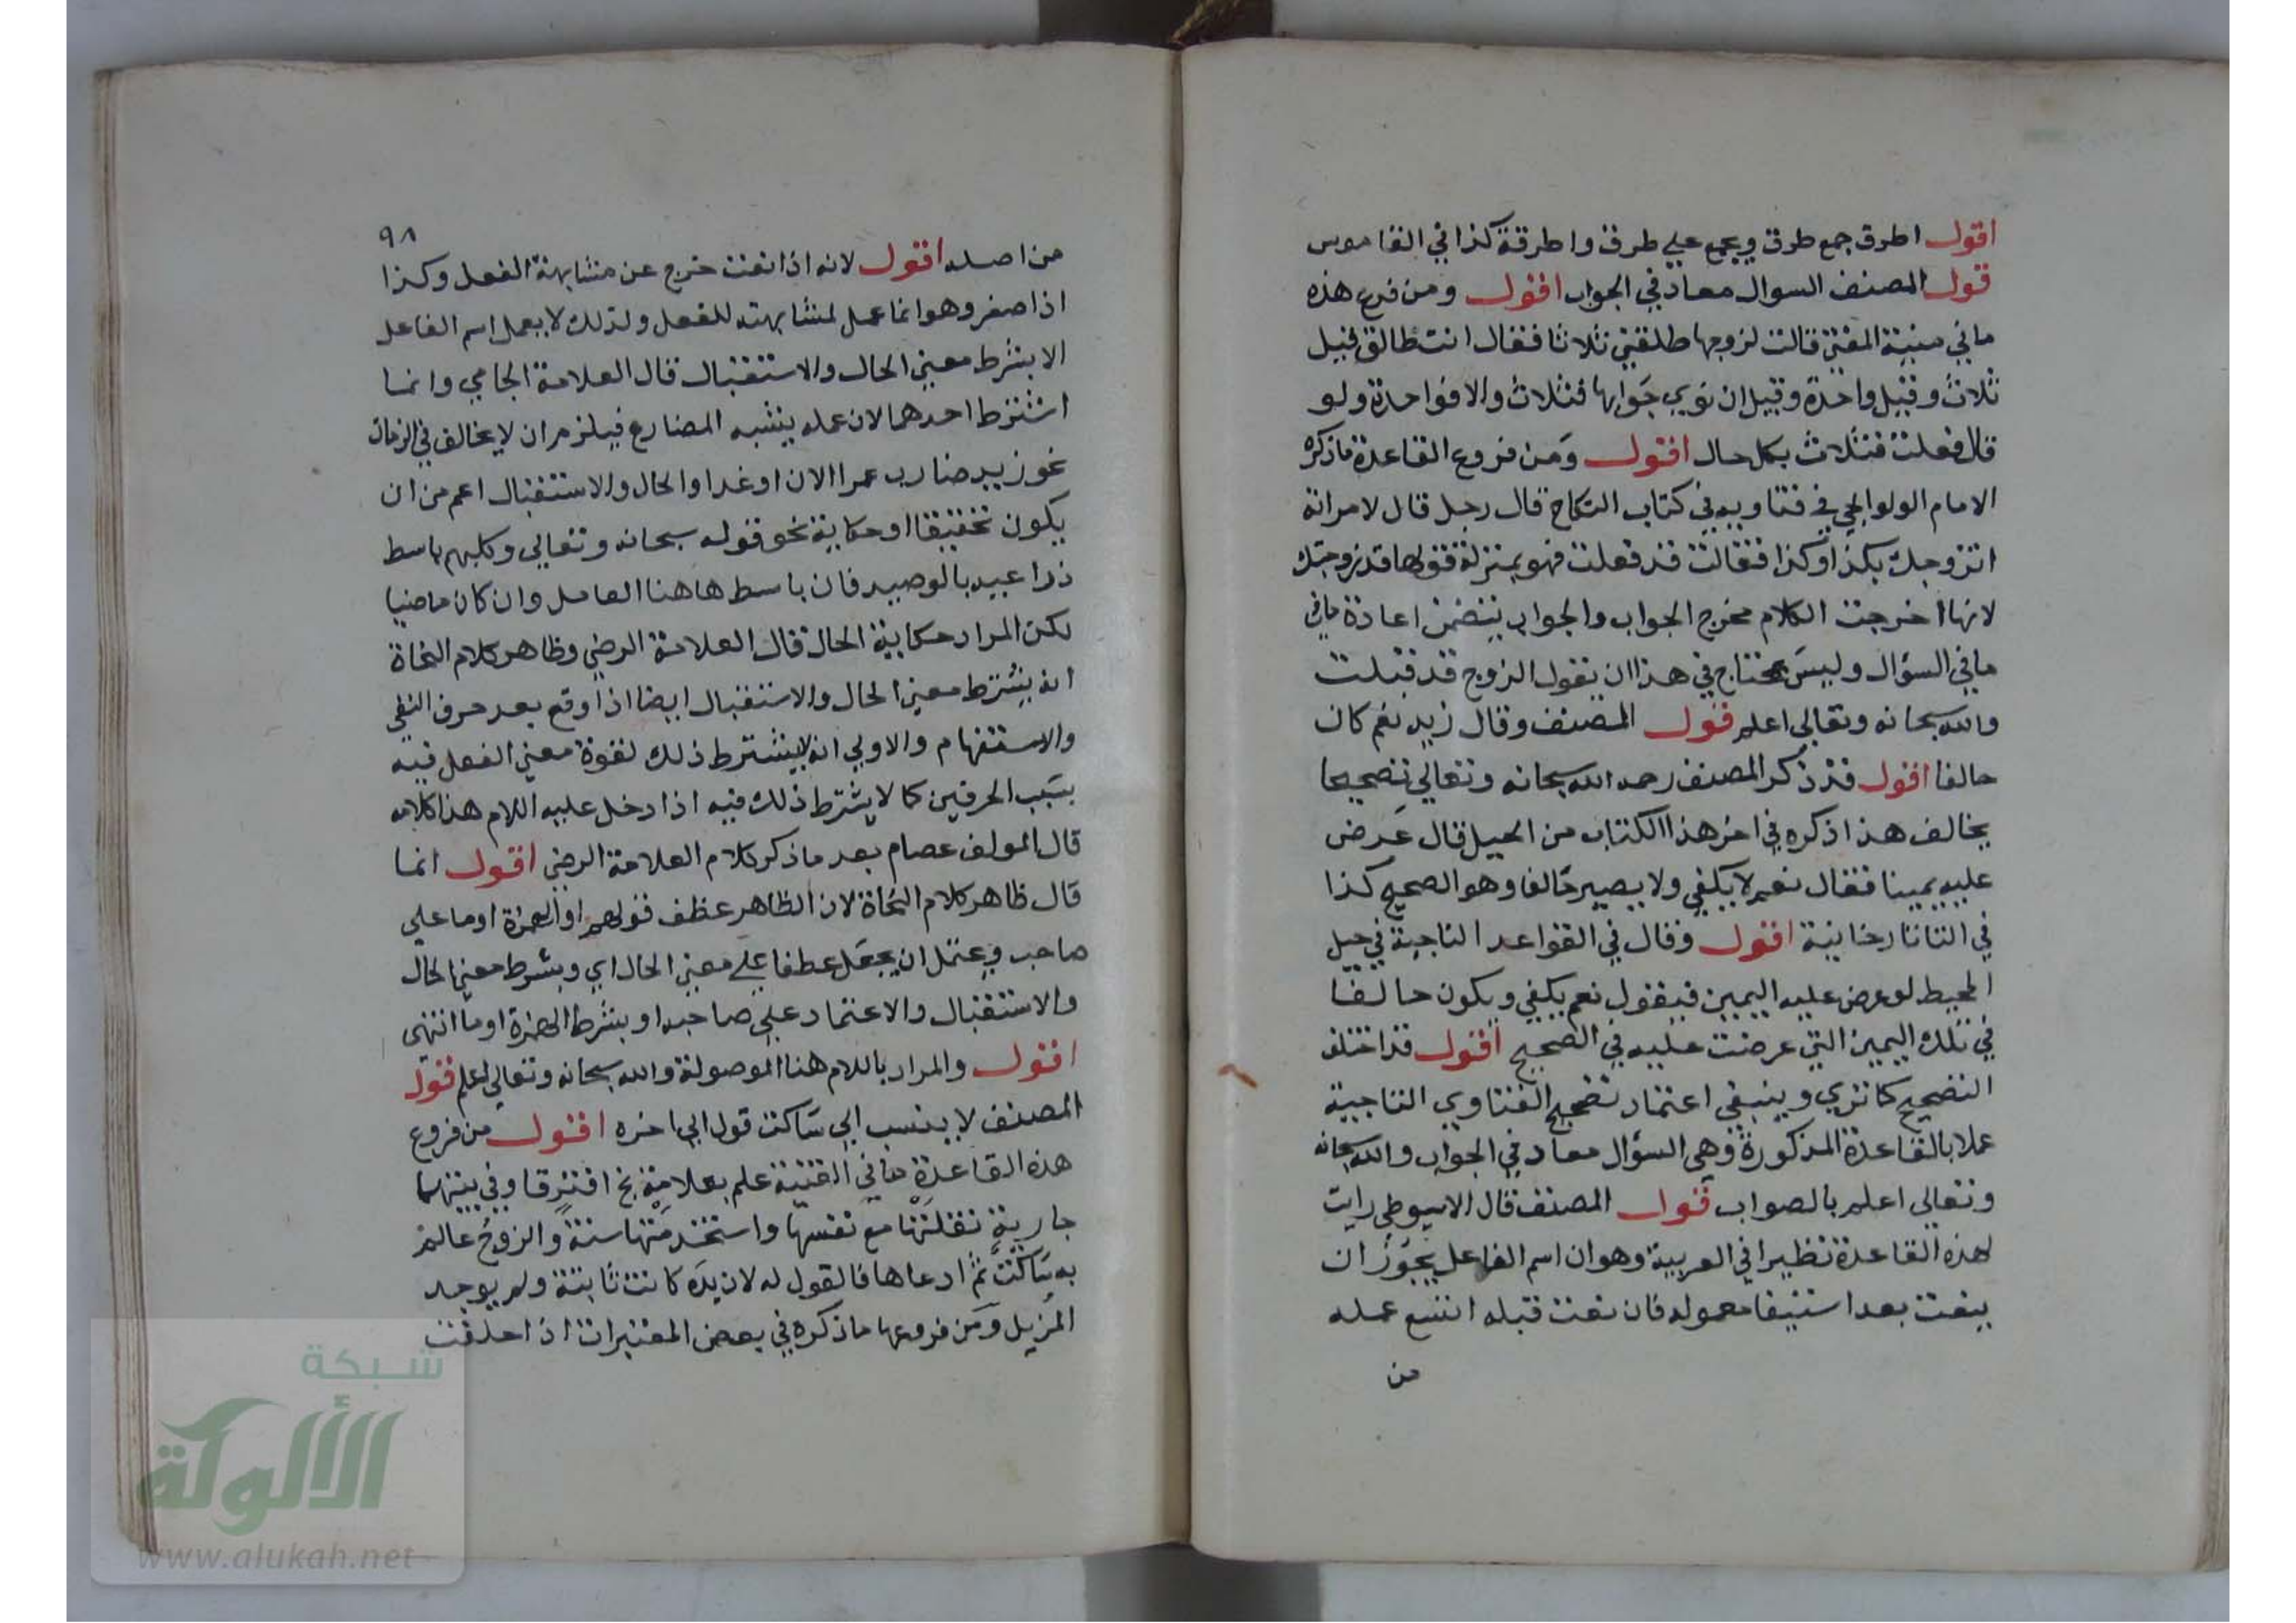 اقول اطرق جمع طرق ويجمع على طرق واطرقة كذا في القاموس
قول المصنف السوال معاد في الجواب اقول ومن فرع هذه
ما في منية المفتي قالت لزوجها طلقني ثلاثا فقال انت طالق قيل
ثلاث وقيل واحدة وقيل ان نوى جوابها فثلاث والا فواحدة ولو
قال فعلت فثلاث بكل حال اقول ومن فروع القاعدة ما ذكره
الامام الولوالجي في فتاويه في كتاب النكاح قال رجل قال لامراة
اتزوجك بكذا وكذا فقالت قد فعلت فهو بمنزلة قولها قد زوجتك
لانها اخرجت الكلام مخرج الجواب والجواب يتضمن اعادة ما في
ما في السؤال وليس يحتاج في هذا ان يقول الزوج قد قبلت
والله سبحانه وتعالى اعلم قول المصنف وقال زيد نعم كان
حالفا اقول قد ذكر المصنف رحمه الله سبحانه وتعالى تصحيحا
يخالف هذا ذكره في اخر هذا الكتاب من الحيل قال عرض
عليه يمينا فقال نعم لا يكفي ولا يصير حالفا وهو الصحيح كذا
في التاتارخانية اقول وقال في القواعد التاجية في حيل
المحيط لو عرض عليه اليمين فيقول نعم يكفي ويكون حالفا
في تلك اليمين التي عرضت عليه في الصحيح اقول قد اختلف
التصحيح كما ترى وينبغي اعتماد تصحيح الفتاوي التاجية
عملا بالقاعدة المذكورة وهي السؤال معاد في الجواب والله سبحانه
وتعالى اعلم بالصواب قول المصنف قال الاسيوطي رايت
لهذه القاعدة نظيرا في العربية وهو ان اسم الفاعل يجوز ان
ينعت بعد استيفا معموله فان نعت قبله امتنع عمله
من
٩٨
من اصله اقول لانه اذا نعت خرج عن مشابهة الفعل وكذا
اذا صغر وهو انما عمل لمشابهته للفعل ولذلك لا يعمل اسم الفاعل
الا بشرط معنى الحال والاستقبال قال العلامة الجامي وانما
اشترط احدهما لان عمله يشبه المضارع فيلزم ان لا يخالف في الزمان
نحو زيد ضارب عمرا الان او غدا والحال والاستقبال اعم من ان
يكون تحقيقا او حكاية نحو قوله سبحانه وتعالى وكلبهم باسط
ذراعيه بالوصيد فان باسط هاهنا العامل وان كان ماضيا
لكن المراد حكاية الحال قال العلامة الرضي وظاهر كلام النحاة
انه يشترط معنى الحال والاستقبال ايضا اذا وقع بعد حرف النفي
والاستفهام والاولى انه لا يشترط ذلك لقوة معنى الفعل فيه
بسبب الحرفين كما لا يشترط ذلك فيه اذا دخل عليه اللام هذا كلامه
قال المولف عصام بعد ما ذكر كلام العلامة الرضي اقول انما
قال ظاهر كلام النحاة لان الظاهر عطف قولهم او الهمزة او ما على
صاحب ويحتمل ان يجعل عطفا على معنى الحال اي وبشرط معنى الحال
والاستقبال والاعتماد على صاحبه او بشرط الهمزة او ما انتهى
اقول والمراد باللام هنا الموصولة والله سبحانه وتعالى اعلم قول
المصنف لا ينسب الى ساكت قول الى اخره اقول من فروع
هذه القاعدة ما في القنية علم بعلامة بخ افترقا وفي بيتهما
جارية نقلتها مع نفسها واستخدمتها سنة والزوج عالم
به ساكت ثم ادعاها فالقول له لان يده كانت ثابتة ولم يوجد
المزيل ومن فروعها ما ذكره في بعض المعتبرات اذا حلفت
شبكة
الألوكة
www.alukah.net